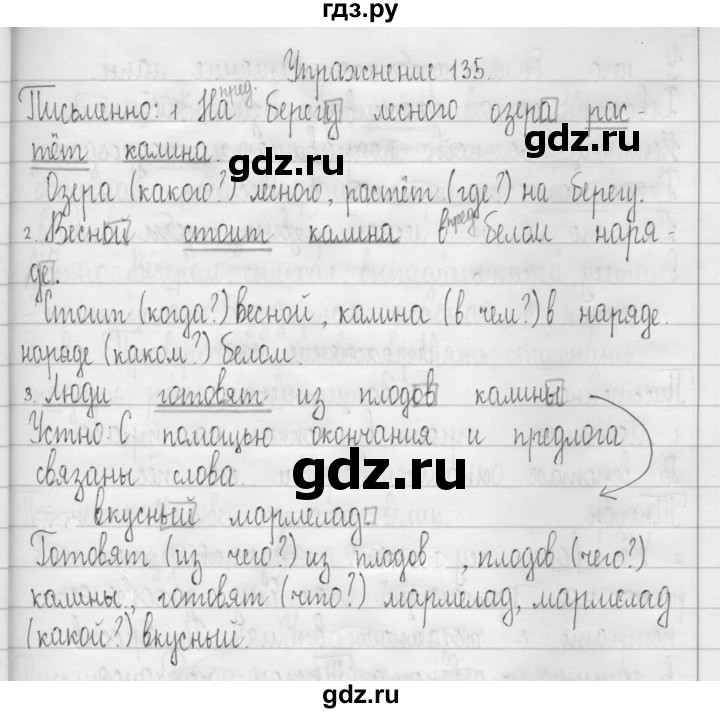 гдз.ру
Упражнение 135.
пред.
Письменно: 1. На берегу лесного озера рас-
тёт калина.
gdz.ru gdz.ru
Озера (какого?) лесного, растёт (где?) на берегу.
пред
2. Весной стоит калина в белом наря-
де.
Стоит (когда?) весной, калина (в чем?) в наряде.
наряде (каком?) белом.
3. Люди готовят из плодов калины
Устно: С помощью окончания и предлога
связаны слова.
gdz.ru
вкусный мармелад
Готовят (из чего?) из плодов, плодов (чего?)
калины, готовят (что?) мармелад, мармелад
(какой?) вкусный.
gdz.ru gdz.ru
gdz.ru